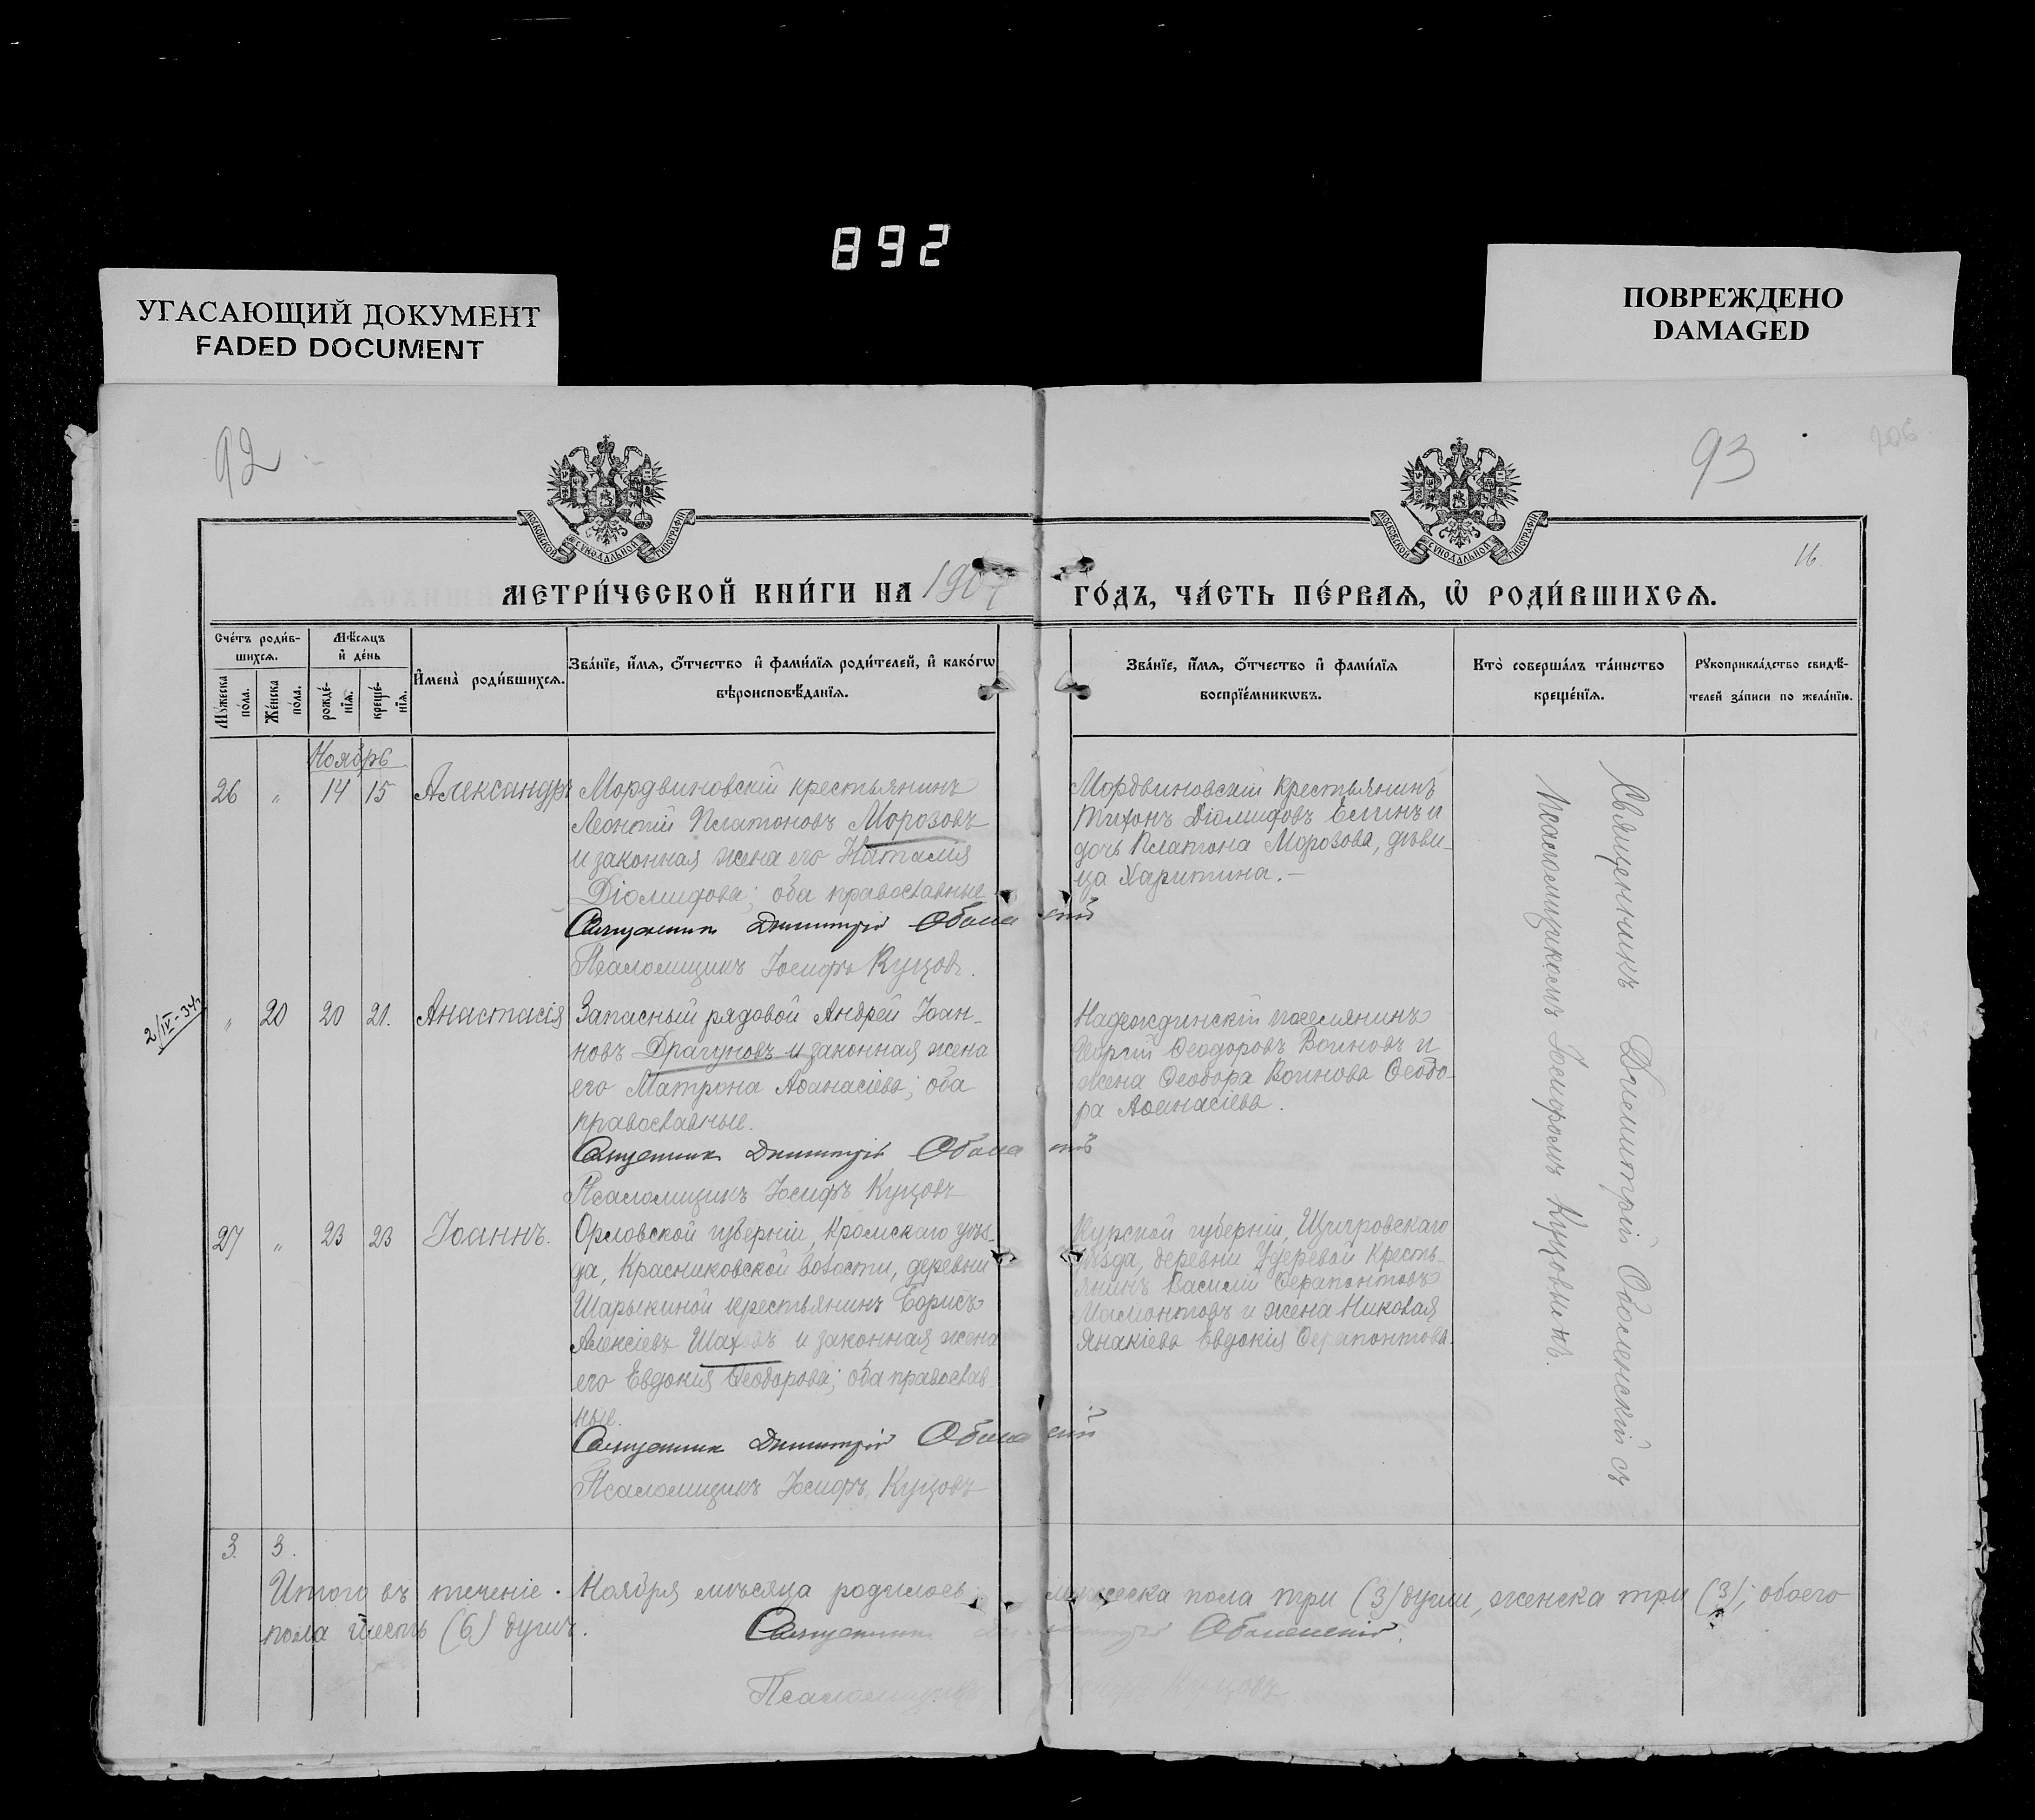 892
УГАСАЮЩИЙ ДОКУМЕНТ
FADED DOCUMENT
ПОВРЕЖДЕНО
DAMAGED
92
93
206
МОСКОВСКОЙ СѴНОДАЛЬНОЙ ТИПОГРАФІИ
МОСКОВСКОЙ СѴНОДАЛЬНОЙ ТИПОГРАФІИ
16
МЕТРИ́ЧЕСКОЙ КНИ́ГИ НА 1907 ГО́ДЪ, ЧА́СТЬ ПЕ́РВАѦ, Ѡ҆ РОДИ́ВШИХСѦ.
Сче́тъ роди́в-
шихсѧ.
Мѹ́жеска по́ла.
Же́нска по́ла.
Мѣ́сѧцъ
и҆ де́нь
рожде́-
нїѧ.
креще́-
нїѧ.
И҆мена̀ роди́вшихсѧ.
Зва́нїе, и҆́мѧ, ѻ҆́тчество и҆ фами́лїѧ роди́телей, и҆ како́гѡ
вѣроисповѣ́данїѧ.
Зва́нїе, и҆́мѧ, ѻ҆́тчество и҆ фами́лїѧ
воспрїе́мникѡвъ.
Кто̀ соверша́лъ та́инство
креще́нїѧ.
Рѹкоприкла́дство свидѣ́-
телей за́писи по жела́нїю.
Ноябрь
26 " 14 15 Александръ
Мордвиновскій крестьянинъ
Леонтій Платоновъ Морозовъ
и законная жена его Наталія
Діомидова; оба православные
Священникъ Димитрій Оболенскій
Псаломщикъ Іосифъ Куцовъ.
Мордвиновскій крестьянинъ
Тихонъ Діомидовъ Елинъ и
дочь Платона Морозова, дѣви-
ца Харитина.—
2/IV-34г.
" 20 20 21. Анастасія
Запасный рядовой Андрей Іоан-
новъ Драгуновъ и законная жена
его Матрона Аѳанасіева; оба
православные.
Священникъ Димитрій Оболенскій
Псаломщикъ Іосифъ Куцовъ
Надеждинскій поселянинъ
Георгій Ѳеодоровъ Воиновъ и
жена Ѳеодора Воинова Ѳеодо-
ра Аѳанасіева.
27 " 23 23 Іоаннъ.
Орловской губерніи, Кромскаго уѣз-
да, Красниковской волости, деревни
Шарыкиной крестьянинъ Борисъ
Алексіевъ Шаховъ и законная жена
его Евдокія Ѳеодорова; оба православ
ные.
Священникъ Димитрій Оболенскій
Псаломщикъ Іосифъ Куцовъ
Курской губерніи, Щигровскаго
уѣзда, деревни Удеревой кресть-
янинъ Василій Ѳерапонтовъ
Мамонтовъ и жена Николая
Янакіева Евдокія Ѳерапонтова.
Священникъ Димитрій Оболенскій съ
псаломщикомъ Іосифомъ Куцовымъ.
3. 3.
Итого въ теченіе Ноября мѣсяца родилось мужеска пола три (3) души, женска три (3); обоего
пола шесть (6) душъ.
Священникъ Димитрій Оболенскій.
Псаломщикъ Іосифъ Куцовъ